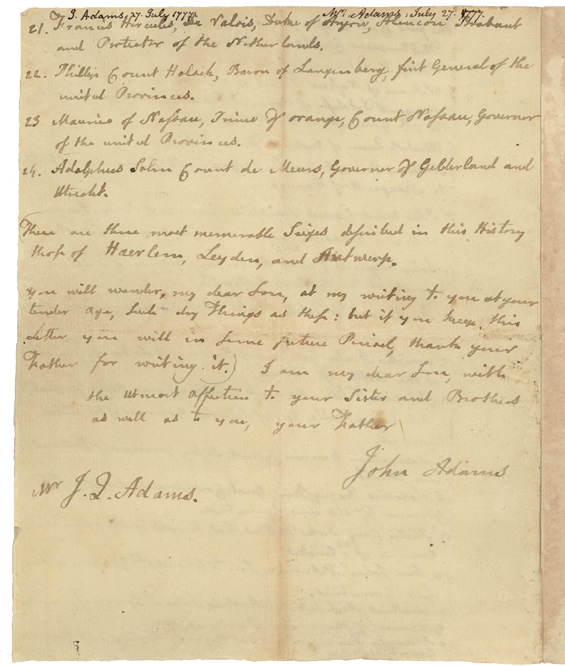 J. Adams, 27. July 1777. Mr. Adams. July 27. 1777.
21. Francis Hercules, De Valois, Duke of Anjou, Alencon Brabant
and Protector of the Netherlands.
22. Phillip Count Holack, Baron of Langenberg, first General of the
united Provinces.
23 Maurice of Nassau, Prince of orange, Count Nassau, Governor
of the united Provinces.
24. Adolphus Solm Count de Meurs, Governor of Gelderland and
Utrecht.
There are three most memorable Sieges described in this History
those of Haerlem, Leyden, and Antwerp.
You will wonder, my dear Son, at my writing to you at your
tender Age, such dry Things as these: but if you keep this
Letter you will in some future Period, thank your
Father for writing it. I am my dear Son, with
the Utmost Affection to your Sister and Brothers
as well as to you, your Father
John Adams
Mr J. Q. Adams.